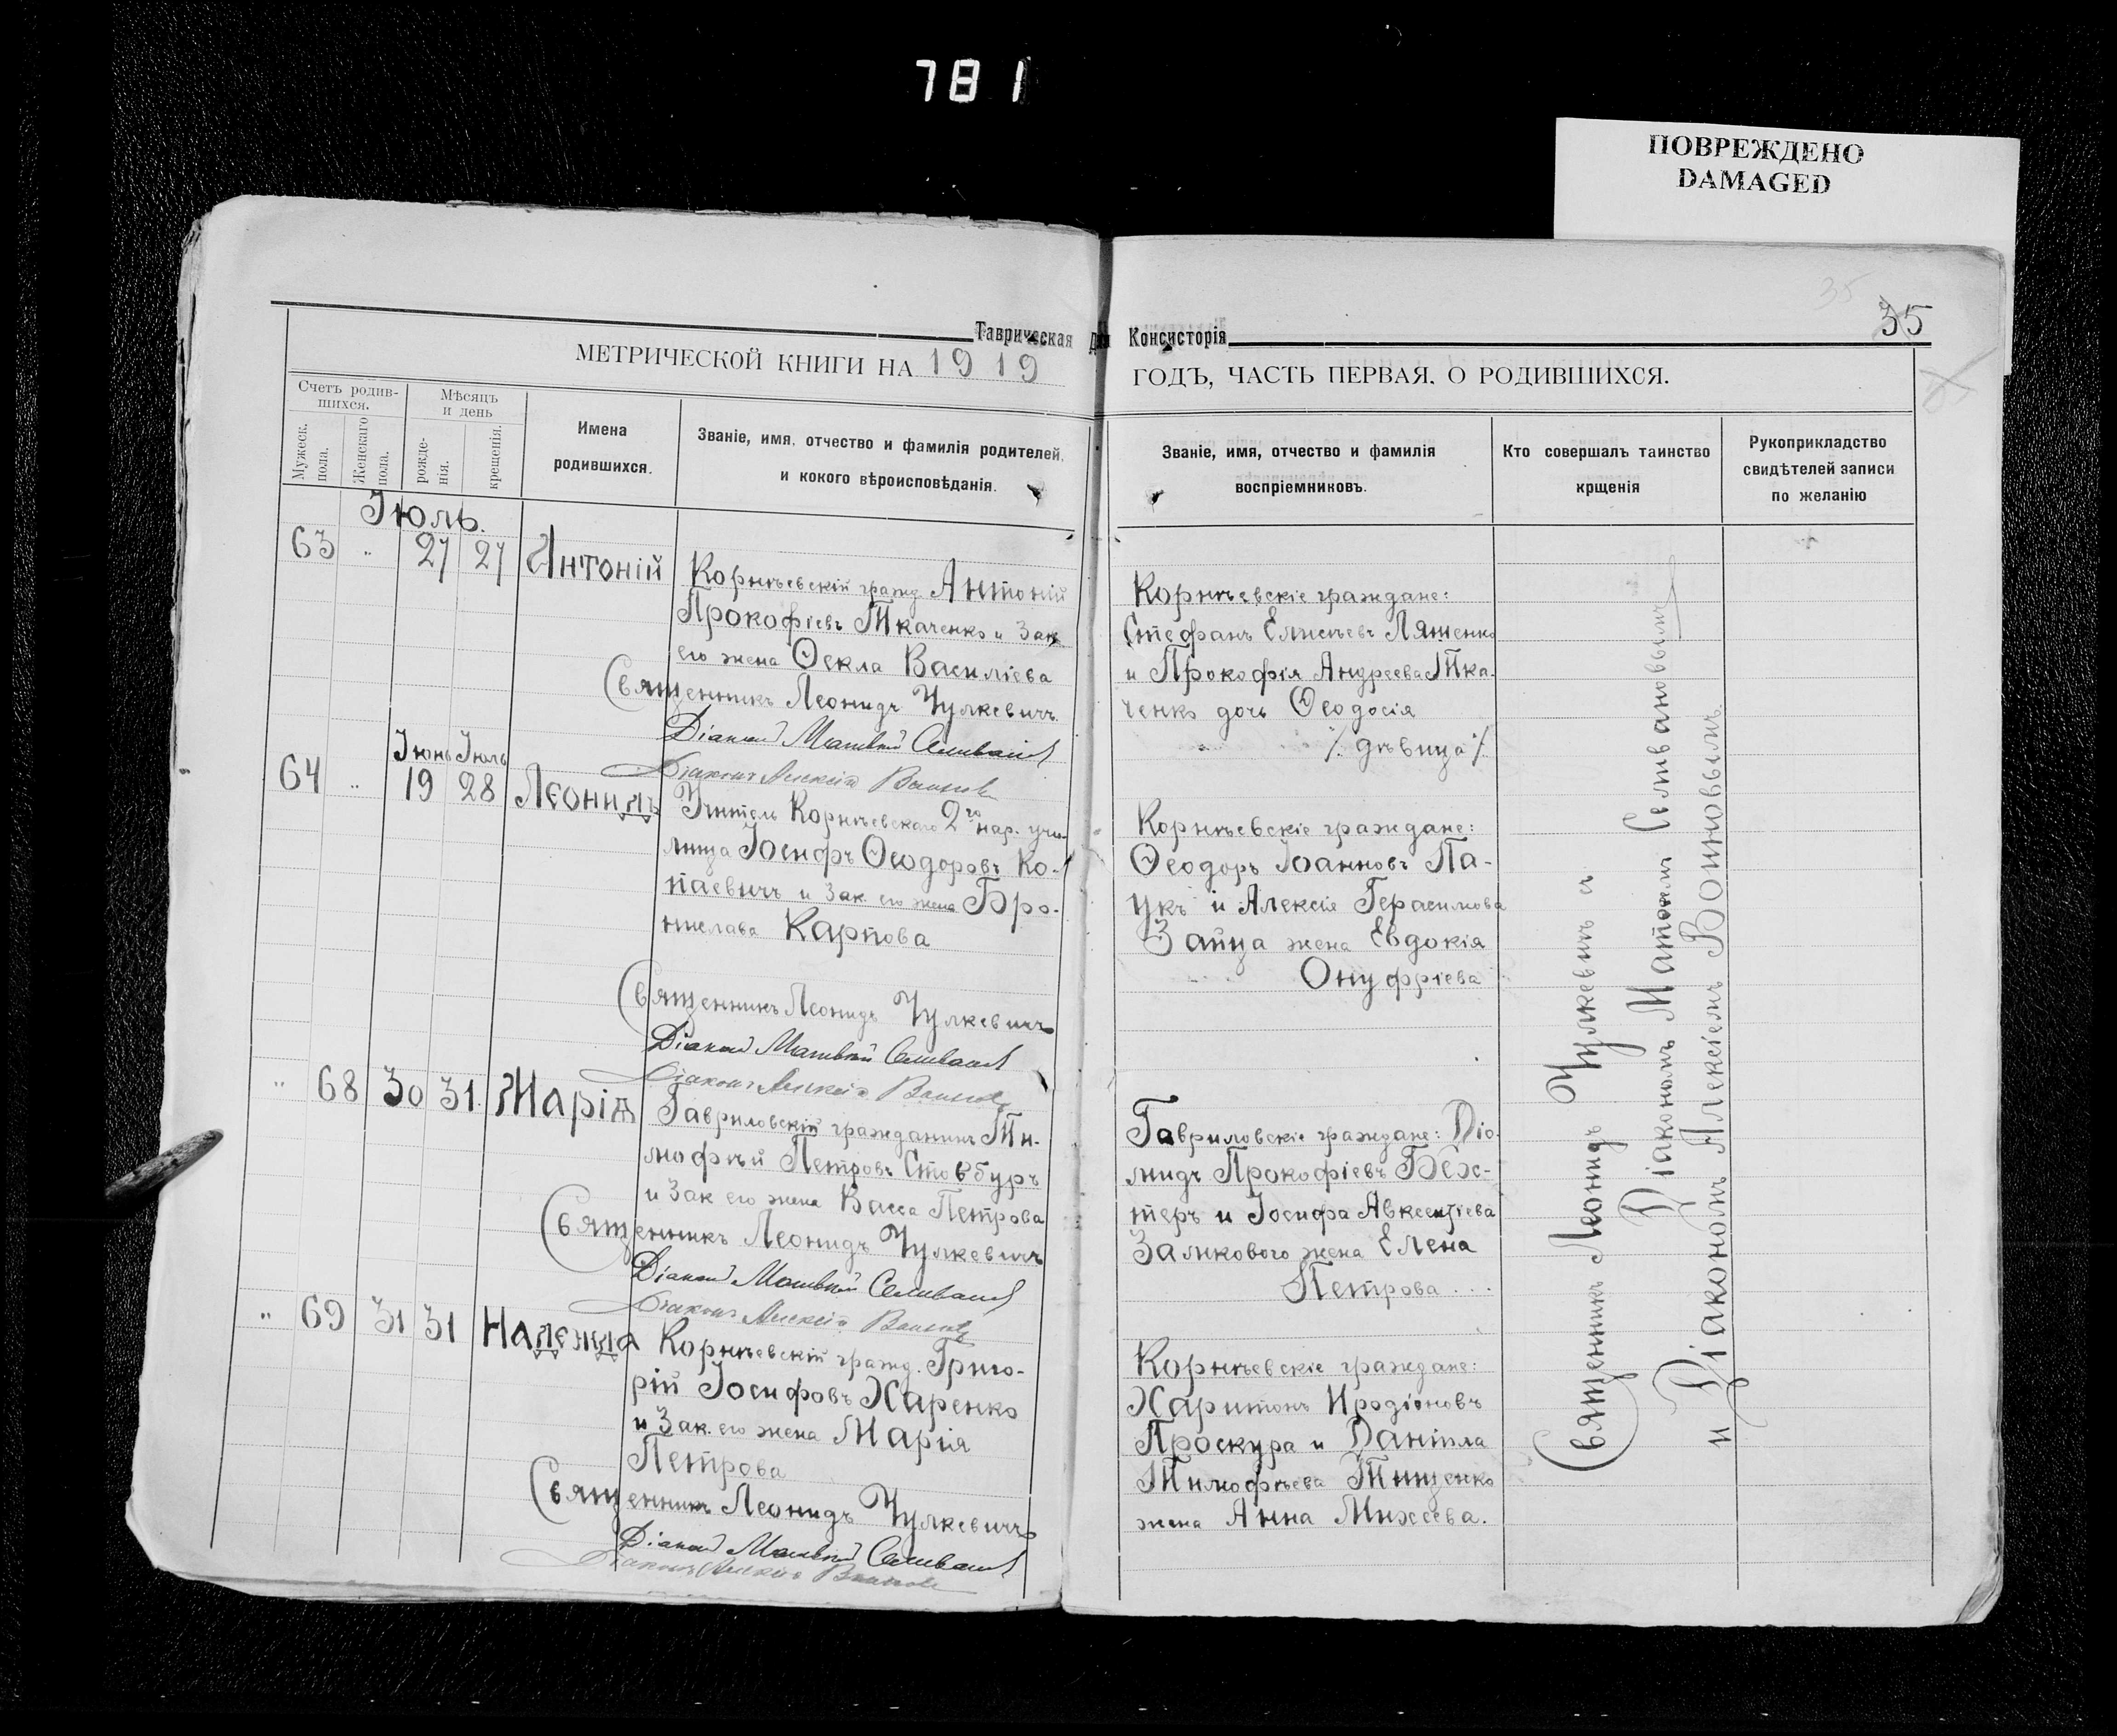 781
ПОВРЕЖДЕНО
DAMAGED
35
35
Таврическая Дух Консисторія
МЕТРИЧЕСКОЙ КНИГИ НА 1919
ГОДЪ, ЧАСТЬ ПЕРВАЯ. О РОДИВШИХСЯ.
Счетъ родив-
шихся.
Мужеск.
пола.
Женскаго
пола.
Мѣсяцъ
и день
рожде-
нія.
крещенія.
Имена
родившихся.
Званіе, имя, отчество и фамилія родителей,
и кокого вѣроисповѣданія.
Званіе, имя, отчество и фамилія
воспріемниковъ.
Кто совершалъ таинство
крщенія
Рукоприкладство
свидѣтелей записи
по желанію
Іюль.
63 " 27 27 Антоній
Корнѣевскій гражд. Антоній
Прокофіевъ Ткаченко и Зак.
его жена Ѳекла Василіева
Священникъ Леонидъ Чулкевичъ.
Діаконъ Матвѣй Селивановъ
Діаконъ Алексій Воиновъ
Корнѣевскіе граждане:
Стефанъ Елисѣевъ Ляшенко
и Прокофія Андреева Тка-
ченко дочь Ѳеодосія
/. дѣвица /.
Іюнь Іюль
64 " 19 28 Леонидъ
Учитель Корнѣевскаго 2го нар. учи-
лища Іосифъ Ѳеодоровъ Ко-
паевичъ и Зак. его жена Бро-
нислава Карпова
Священникъ Леонидъ Чулкевичъ
Діаконъ Матвѣй Селивановъ
Діаконъ Алексій Воиновъ
Корнѣевскіе граждане:
Ѳеодоръ Іоанновъ Па-
укъ и Алексія Герасимова
Зайца жена Евдокія
Онуфріева
" 68 30 31. Марія
Гавриловскій гражданинъ Ти-
мофѣй Петровъ Стовбуръ
и Зак его жена Васса Петрова
Священникъ Леонидъ Чулкевичъ
Діаконъ Матвѣй Селивановъ
Діаконъ Алексій Воиновъ
Гавриловскіе граждане: Діо-
мидъ Прокофіевъ Бех-
теръ и Іосифа Авксентіева
Заикового жена Елена
Петрова . . .
" 69 31 31 Надежда
Корнѣевскій гражд. Григо-
рій Іосифовъ Харенко
и Зак. его жена Марія
Петрова
Священникъ Леонидъ Чулкевичъ
Діаконъ Матвѣй Селивановъ
Діаконъ Алексій Воиновъ
Корнѣевскіе граждане:
Харитонъ Иродіоновъ
Проскура и Даніила
Тимофѣева Тищенко
жена Анна Михеева.
Священникъ Леонидъ Чулкевичъ съ
Діакономъ Матѳеемъ Селивановымъ
и Діакономъ Алексіемъ Воиновымъ.